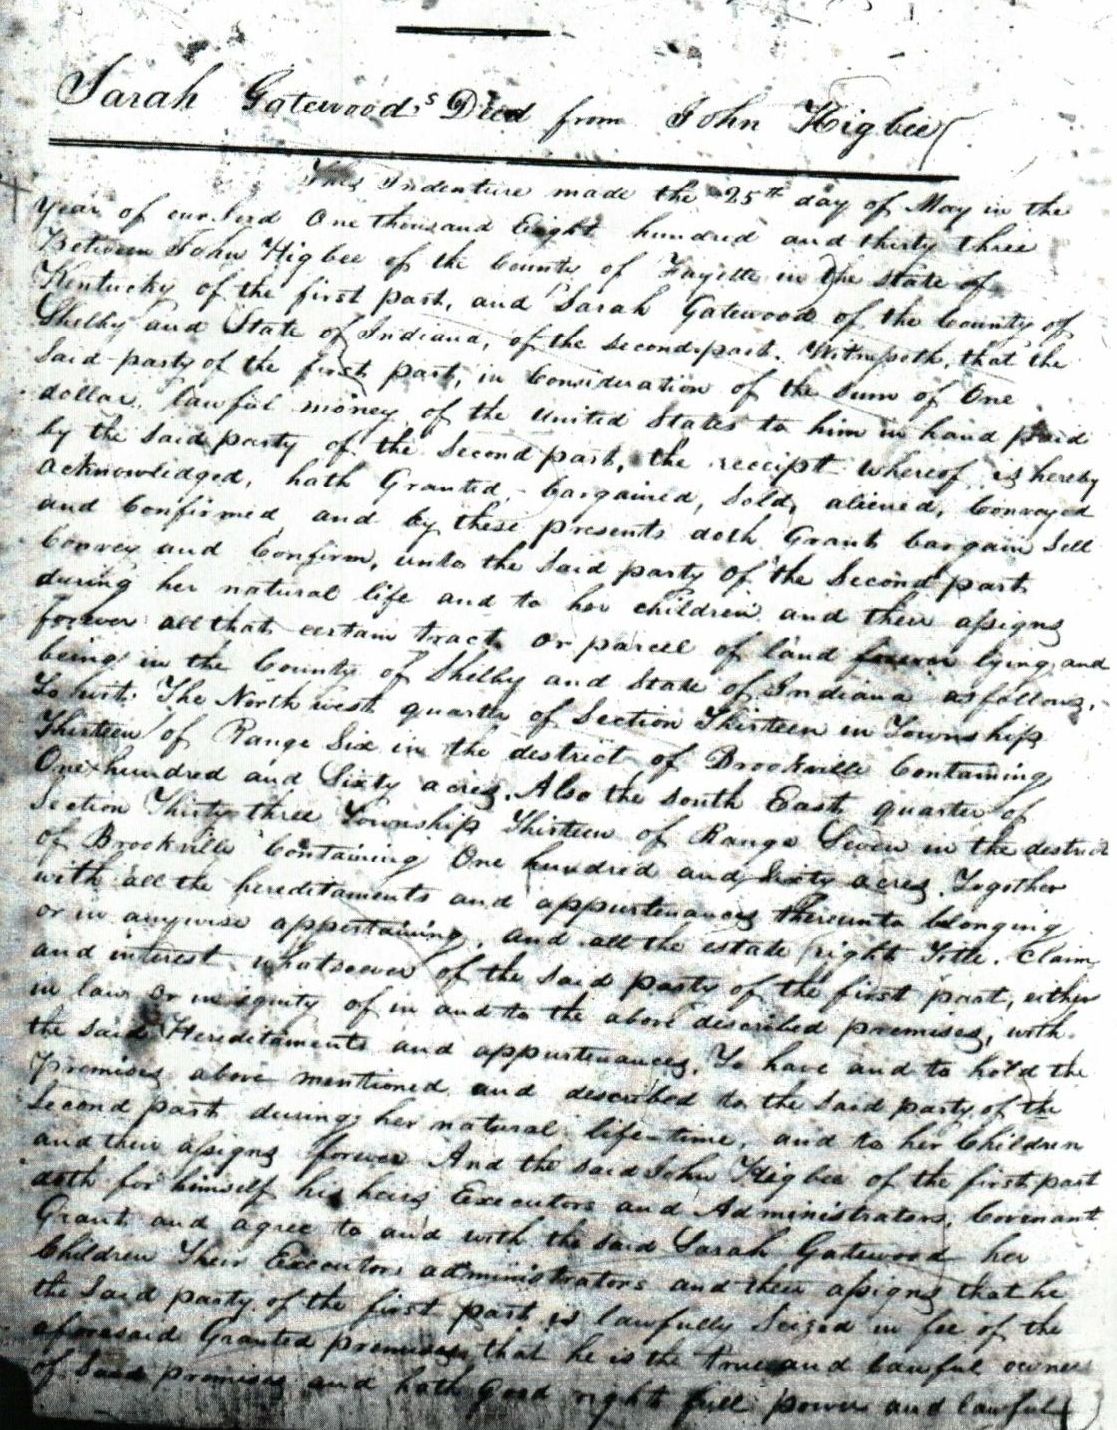 Sarah Gatewood,s Deed from John Higbee
This Indenture made the 25th day of May in the
Year of our Lord One thousand Eight hundred and thirty three
Between John Higbee of the County of Fayette in the State of
Kentucky of the first part, and Sarah Gatewood of the County of
Shelby and State of Indiana, of the second part. Witnesseth, that the
Said party of the first part, in Consideration of the Sum of One
dollar, lawful money of the United States to him in hand paid
by the Said party of the Second part, the receipt whereof is hereby
acknowledged, hath Granted, bargained, Sold, aliened, Conveyed
and Confirmed and by these presents doth Grant bargain Sell
Convey and Confirm, unto the Said party of the Second part
during her natural life and to her children and their assigns
forever all that certain tract or parcel of land forever lying and
being in the County of Shelby and State of Indiana as follows,
To wit. The North west quarter of Section Thirteen in Township
Thirteen of Range Six in the destrict of Brookville Containing
One hundred and Sixty acres. Also the South East quarter of
Section Thirty three Township Thirteen of Range Seven in the destrict
of Brookville Containing One hundred and Sixty acres. Together
with all the hereditaments and appurtenances thereunto belonging
or in anywise appertaining, and all the estate right Title. Claim
and interest whatsoever of the Said party of the first part, either
in law or in equity of in and to the above described premises, with
the Said Hereditaments and appurtenances, To have and to hold the
Premises above mentioned and described to the Said party of the
Second part during her natural life-time, and to her Children
and their assigns forever And the said John Higbee of the first part
doth for himself his heirs Executors and Administrators, Covenant
Grant and agree to and with the said Sarah Gatewood her
Children Their Executors administrators and their assigns that he
the Said party of the first part is lawfully Seized in fee of the
aforesaid Granted premises that he is the true and lawful owner
of Said premises and hath good right full power and lawful